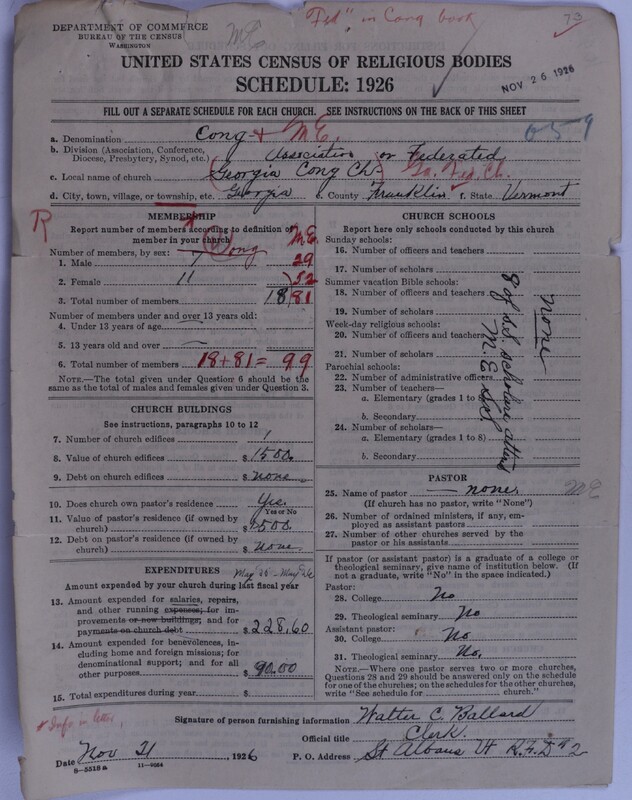 "Fed" in Cong book
73
DEPARTMENT OF COMMERCE
BUREAU OF THE CENSUS
WASHINGTON
M.E.
UNITED STATES CENSUS OF RELIGIOUS BODIES
SCHEDULE: 1926
NOV 26 1926
FILL OUT A SEPARATE SCHEDULE FOR EACH CHURCH. SEE INSTRUCTIONS ON THE BACK OF THIS SHEET
a. Denomination Cong + M.E. 659
b. Division (Association, Conference, Diocese, Presbytery, Synod, etc.) Association or Federated
c. Local name of church Georgia Cong Ch. Ga. Fed. Ch.
d. City, town, village, or township, etc. Georgia e. County Franklin f. State Vermont
R
MEMBERSHIP
Report number of members according to definition of
member in your church
Number of members, by sex: Cong M.E.
1. Male 7 29
2. Female 11 52
3. Total number of members 18 81
Number of members under and over 13 years old:
4. Under 13 years of age
5. 13 years old and over
6. Total number of members 18+81= 99
NOTE.—The total given under Question 6 should be the
same as the total of males and females given under Question 3.
CHURCH BUILDINGS
See instructions, paragraphs 10 to 12
7. Number of church edifices 1
8. Value of church edifices $ 1500.
9. Debt on church edifices $ None
10. Does church own pastor's residence Yes.
Yes or No
11. Value of pastor's residence (if owned by
church) $ 2500.
12. Debt on pastor's residence (if owned by
church) $ None.
EXPENDITURES May 25 - May 26
Amount expended by your church during last fiscal year
13. Amount expended for salaries, repairs,
and other running expenses; for im-
provements or new buildings; and for
payments on church debt $ 228.60
14. Amount expended for benevolences, in-
cluding home and foreign missions; for
denominational support; and for all
other purposes $ 90.00
15. Total expenditures during year $
CHURCH SCHOOLS
Report here only schools conducted by this church
Sunday schools:
16. Number of officers and teachers
17. Number of scholars
Summer vacation Bible schools:
18. Number of officers and teachers
19. Number of scholars
Week-day religious schools:
20. Number of officers and teachers
21. Number of scholars
Parochial schools:
22. Number of administrative officers
23. Number of teachers—
a. Elementary (grades 1 to 8)
b. Secondary
24. Number of scholars—
a. Elementary (grades 1 to 8)
b. Secondary
none
8 of S.S scholars attend
M.E. Sch
PASTOR
25. Name of pastor none. ME
(If church has no pastor, write "None")
26. Number of ordained ministers, if any, em-
ployed as assistant pastors
27. Number of other churches served by the
pastor or his assistants
If pastor (or assistant pastor) is a graduate of a college or
theological seminary, give name of institution below. (If
not a graduate, write "No" in the space indicated.)
Pastor:
28. College No
29. Theological seminary No
Assistant pastor:
30. College No.
31. Theological seminary No.
NOTE.—Where one pastor serves two or more churches,
Questions 28 and 29 should be answered only on the schedule
for one of the churches; on the schedules for the other churches,
write "See schedule for church."
* Info in letter.
Signature of person furnishing information Walter C. Ballard
Official title Clerk.
Date Nov 21, 1926 P. O. Address St Albans Vt R.F.D #2
8—5518a 11—9064